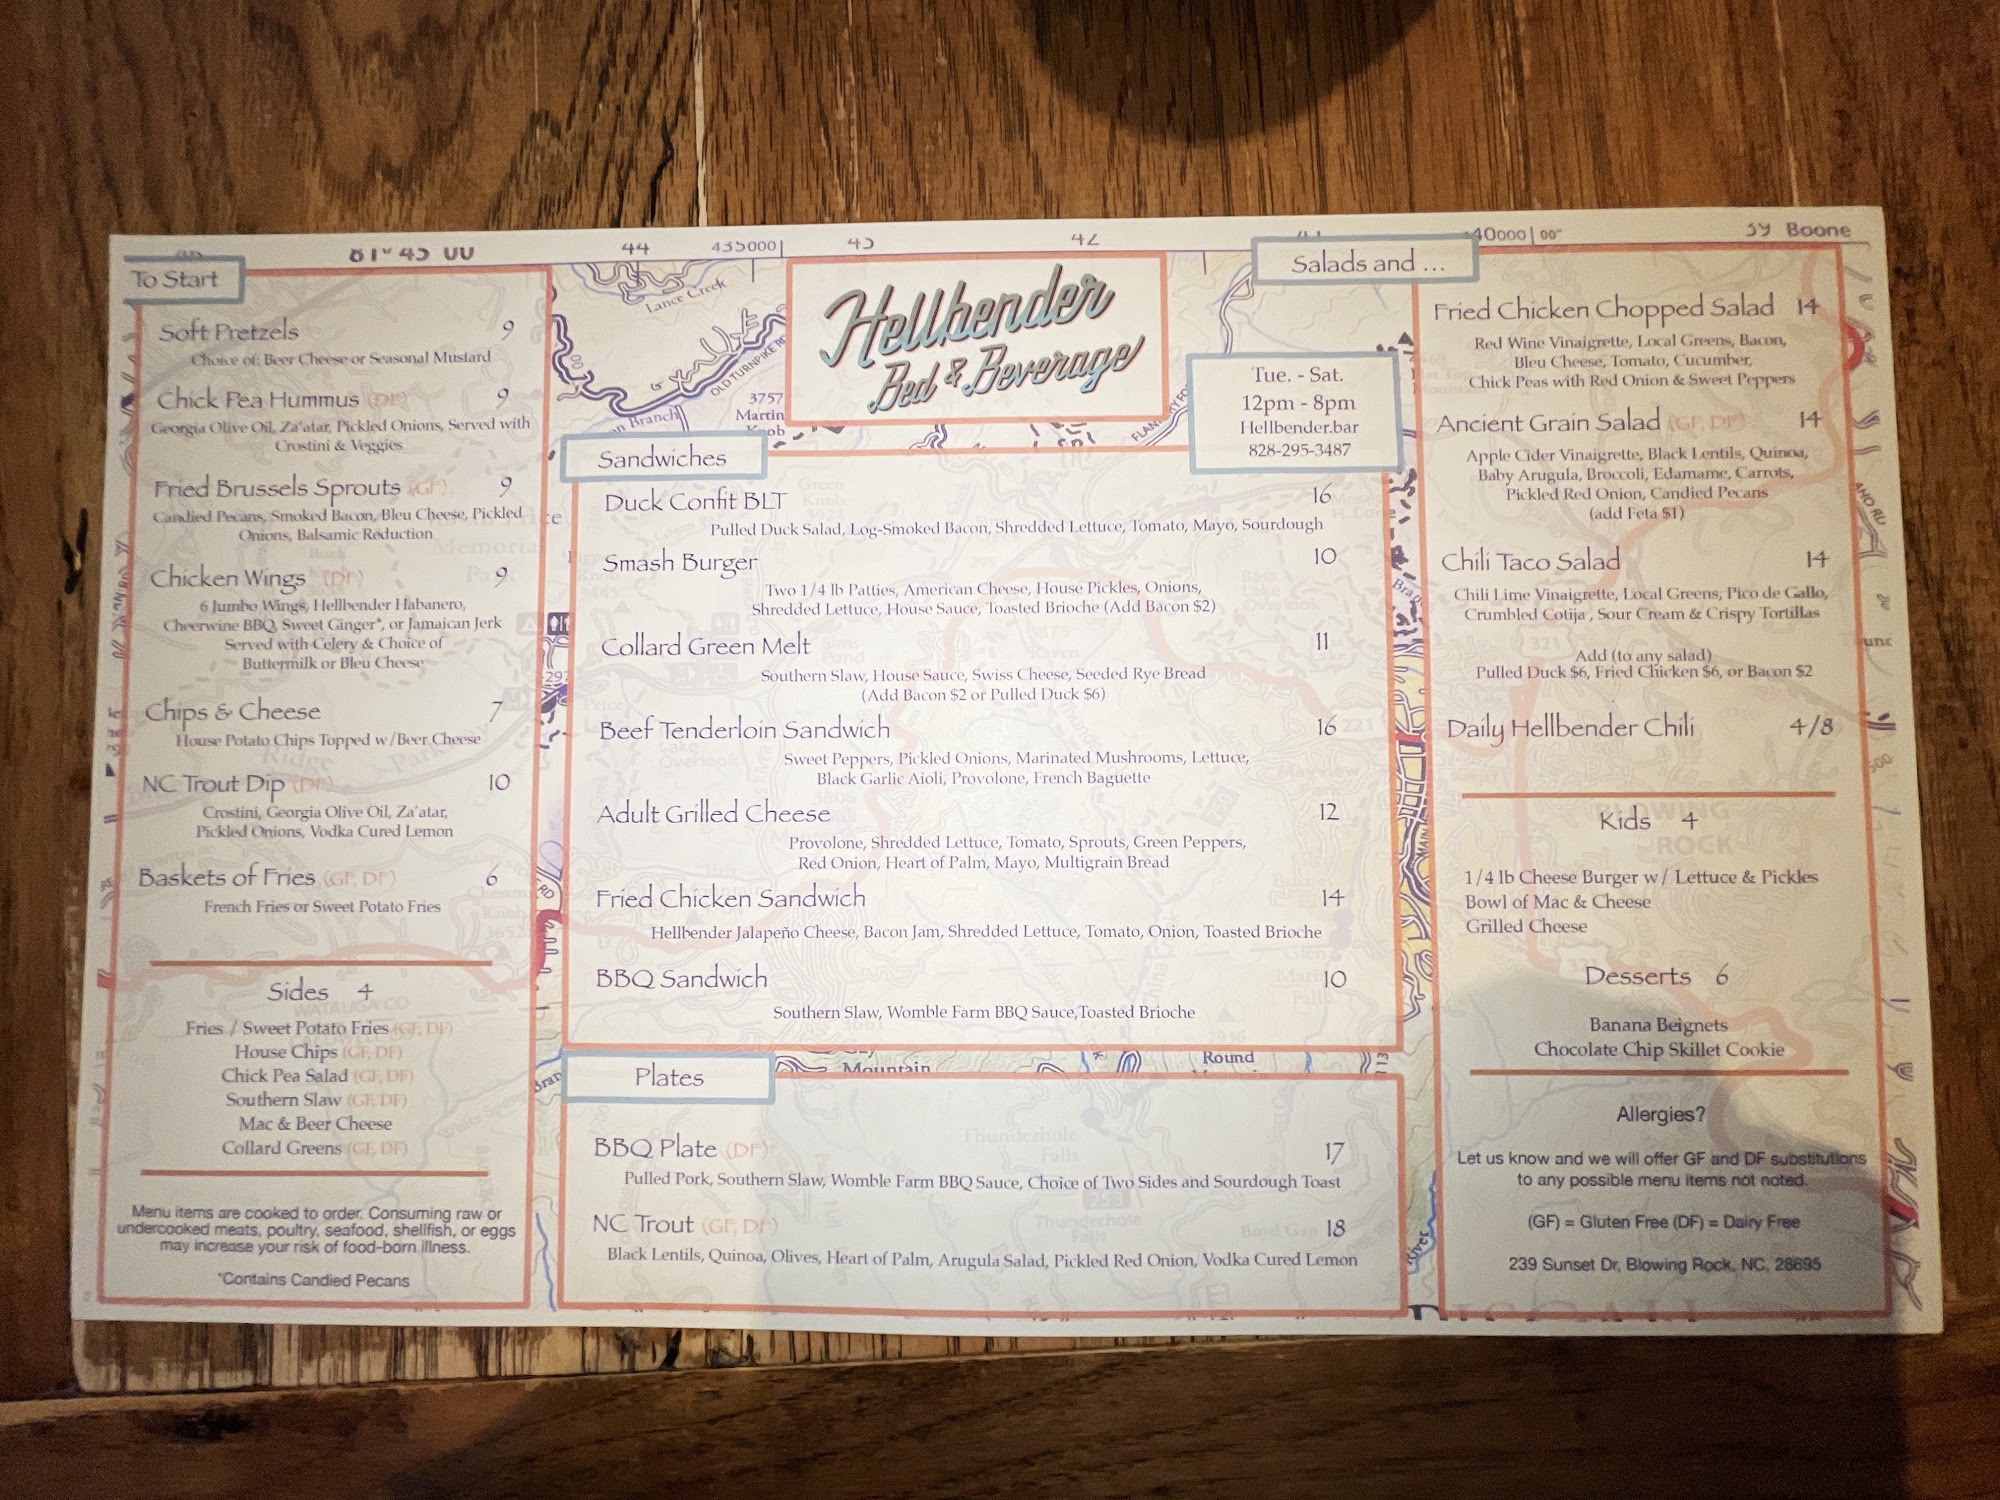 81° 45 00
44
435000
43
42
40000 00"
59 Boone
To Start
Soft Pretzels 9
Choice of: Beer Cheese or Seasonal Mustard
Chick Pea Hummus (DF) 9
Georgia Olive Oil, Za'atar, Pickled Onions, Served with
Crostini & Veggies
Fried Brussels Sprouts (GF) 9
Candied Pecans, Smoked Bacon, Bleu Cheese, Pickled
Onions, Balsamic Reduction
Chicken Wings (DF) 9
6 Jumbo Wings, Hellbender Habanero,
Cheerwine BBQ, Sweet Ginger*, or Jamaican Jerk
Served with Celery & Choice of
Buttermilk or Bleu Cheese
Chips & Cheese 7
House Potato Chips Topped w/Beer Cheese
NC Trout Dip (DF) 10
Crostini, Georgia Olive Oil, Za'atar,
Pickled Onions, Vodka Cured Lemon
Baskets of Fries (GF, DF) 6
French Fries or Sweet Potato Fries
Sides 4
Fries / Sweet Potato Fries (GF, DF)
House Chips (GF, DF)
Chick Pea Salad (GF, DF)
Southern Slaw (GF, DF)
Mac & Beer Cheese
Collard Greens (GF, DF)
Menu items are cooked to order. Consuming raw or
undercooked meats, poultry, seafood, shellfish, or eggs
may increase your risk of food-born illness.
*Contains Candied Pecans
Lance Creek
OLD TURNPIKE RD
3757
Martin
Knob
Branch
Hellbender
Bed & Beverage
Tue. - Sat.
12pm - 8pm
Hellbender.bar
828-295-3487
Sandwiches
Duck Confit BLT 16
Pulled Duck Salad, Log-Smoked Bacon, Shredded Lettuce, Tomato, Mayo, Sourdough
Smash Burger 10
Two 1/4 lb Patties, American Cheese, House Pickles, Onions,
Shredded Lettuce, House Sauce, Toasted Brioche (Add Bacon $2)
Collard Green Melt 11
Southern Slaw, House Sauce, Swiss Cheese, Seeded Rye Bread
(Add Bacon $2 or Pulled Duck $6)
Beef Tenderloin Sandwich 16
Sweet Peppers, Pickled Onions, Marinated Mushrooms, Lettuce,
Black Garlic Aioli, Provolone, French Baguette
Adult Grilled Cheese 12
Provolone, Shredded Lettuce, Tomato, Sprouts, Green Peppers,
Red Onion, Heart of Palm, Mayo, Multigrain Bread
Fried Chicken Sandwich 14
Hellbender Jalapeño Cheese, Bacon Jam, Shredded Lettuce, Tomato, Onion, Toasted Brioche
BBQ Sandwich 10
Southern Slaw, Womble Farm BBQ Sauce,Toasted Brioche
Mountain
Round
Plates
BBQ Plate (DF) 17
Pulled Pork, Southern Slaw, Womble Farm BBQ Sauce, Choice of Two Sides and Sourdough Toast
NC Trout (GF, DF) 18
Black Lentils, Quinoa, Olives, Heart of Palm, Arugula Salad, Pickled Red Onion, Vodka Cured Lemon
Salads and ...
Fried Chicken Chopped Salad 14
Red Wine Vinaigrette, Local Greens, Bacon,
Bleu Cheese, Tomato, Cucumber,
Chick Peas with Red Onion & Sweet Peppers
Ancient Grain Salad (GF, DF) 14
Apple Cider Vinaigrette, Black Lentils, Quinoa,
Baby Arugula, Broccoli, Edamame, Carrots,
Pickled Red Onion, Candied Pecans
(add Feta $1)
Chili Taco Salad 14
Chili Lime Vinaigrette, Local Greens, Pico de Gallo,
Crumbled Cotija , Sour Cream & Crispy Tortillas
Add (to any salad)
Pulled Duck $6, Fried Chicken $6, or Bacon $2
Daily Hellbender Chili 4/8
BLOWING
ROCK
Kids 4
1/4 lb Cheese Burger w/ Lettuce & Pickles
Bowl of Mac & Cheese
Grilled Cheese
Desserts 6
Banana Beignets
Chocolate Chip Skillet Cookie
Allergies?
Let us know and we will offer GF and DF substitutions
to any possible menu items not noted.
(GF) = Gluten Free (DF) = Dairy Free
239 Sunset Dr, Blowing Rock, NC, 28695